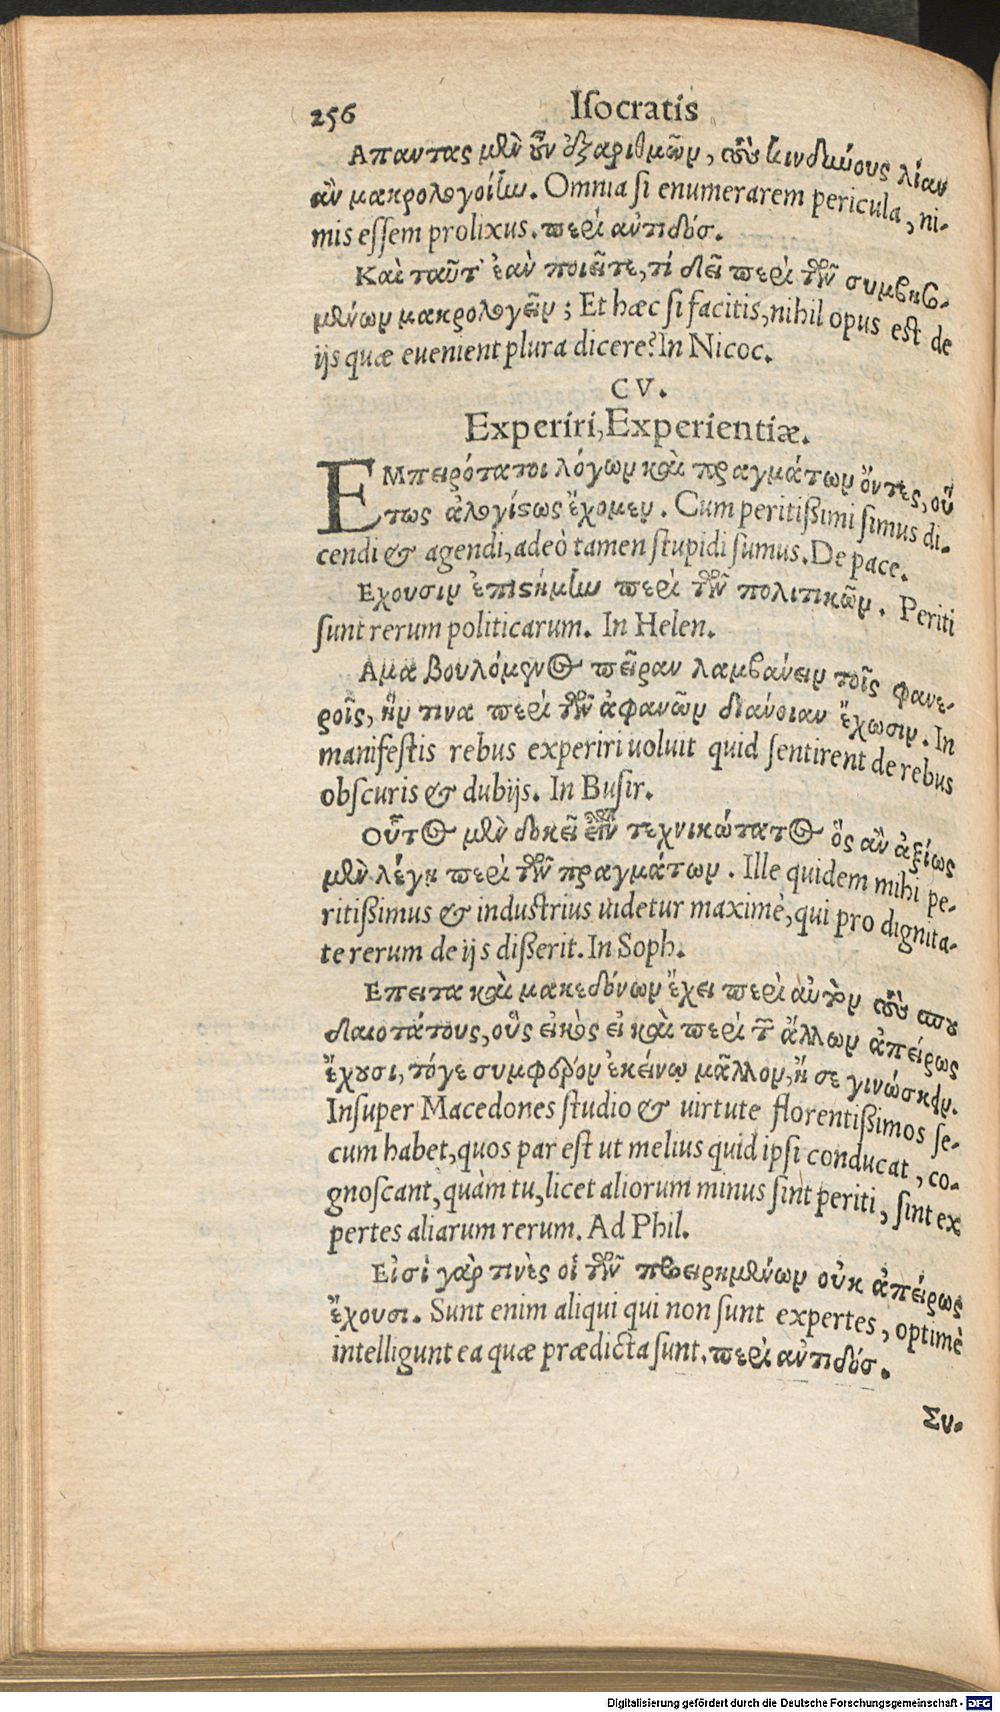 256 Isocratis
Απαντας μὲν οὖν ἐξαριθμῶν, τοὺς κινδύνους λίαν
ἂν μακρολογοίην. Omnia si enumerarem pericula, ni-
mis essem prolixus. περὶ ἀντιδόσ.
Καὶ ταῦτ' ἐὰν ποιῆτε, τί δεῖ περὶ τῶν συμβησο-
μένων μακρολογεῖν; Et hæc si facitis, nihil opus est de
ijs quæ euenient plura dicere? In Nicoc.
CV.
Experiri, Experientiæ.
ΕΜπειρότατοι λόγων καὶ πραγμάτων ὄντες, οὕ
τως ἀλογίστως ἔχομεν. Cum peritißimi simus di-
cendi & agendi, adeò tamen stupidi sumus. De pace.
Εχουσιν ἐπιστήμην περὶ τῶν πολιτικῶν. Periti
sunt rerum politicarum. In Helen.
Αμα βουλόμενος πεῖραν λαμβάνειν τοῖς φανε-
ροῖς, ἥν τινα περὶ τῶν ἀφανῶν διάνοιαν ἔχωσιν. In
manifestis rebus experiri uoluit quid sentirent de rebus
obscuris & dubijs. In Busir.
Οὗτος μὲν δοκεῖ εἶναι τεχνικώτατος ὃς ἂν ἀξίως
μὲν λέγῃ περὶ τῶν πραγμάτων. Ille quidem mihi pe-
ritißimus & industrius uidetur maximè, qui pro dignita-
te rerum de ijs dißerit. In Soph.
Επειτα καὶ μακεδόνων ἔχει περὶ αὑτὸν τοὺς σπου
δαιοτάτους, οὓς εἰκὸς εἰ καὶ περὶ τῶν ἄλλων ἀπείρως
ἔχουσι, τόγε συμφέρον ἐκείνῳ μᾶλλον, ἢ σε γινώσκειν.
Insuper Macedones studio & uirtute florentißimos se-
cum habet, quos par est ut melius quid ipsi conducat, co-
gnoscant, quàm tu, licet aliorum minus sint periti, sint ex
pertes aliarum rerum. Ad Phil.
Εἰσὶ γάρ τινὲς οἳ τῶν προειρημένων οὐκ ἀπείρως
ἔχουσι. Sunt enim aliqui qui non sunt expertes, optimè
intelligunt ea quæ prædicta sunt. περὶ ἀντιδόσ.
Συ-
Digitalisierung gefördert durch die Deutsche Forschungsgemeinschaft - DFG